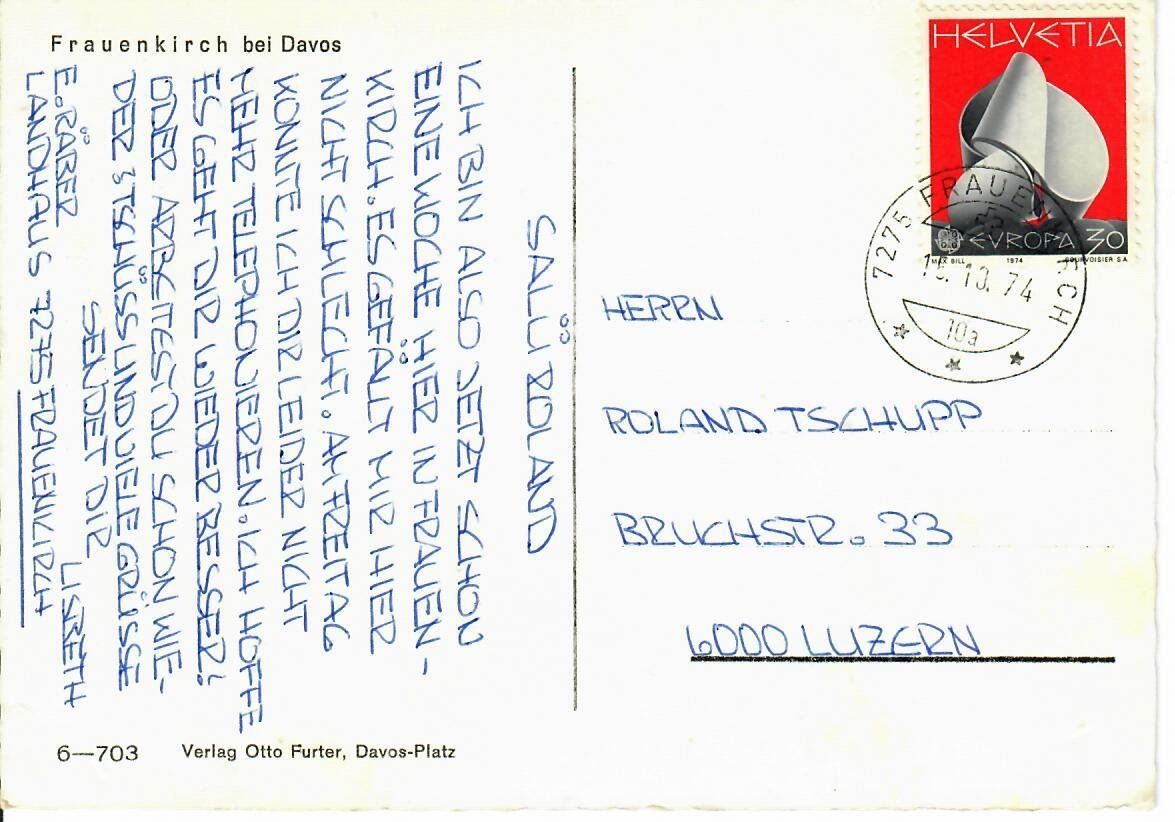 Frauenkirch bei Davos
SALÜ ROLAND
ICH BIN ALSO JETZT SCHON
EINE WOCHE HIER IN FRAUEN-
KIRCH. ES GEFÄLLT MIR HIER
NICHT SCHLECHT. AM FREITAG
KONNTE ICH DIR LEIDER NICHT
MEHR TELEPHONIEREN. ICH HOFFE
ES GEHT DIR WIEDER BESSER!
ODER ARBEITEST DU SCHON WIE-
DER? TSCHÜSS UND VIELE GRÜSSE
SENDET DIR
LISBETH
E. RÄBER
LANDHAUS 7275 FRAUENKIRCH
6—703 Verlag Otto Furter, Davos-Platz
HELVETIA
EVROPA 30
MAX BILL 1974 COURVOISIER S A
7275 FRAUENKIRCH
15.10.74
10a
HERRN
ROLAND TSCHUPP
BRUCHSTR. 33
6000 LUZERN